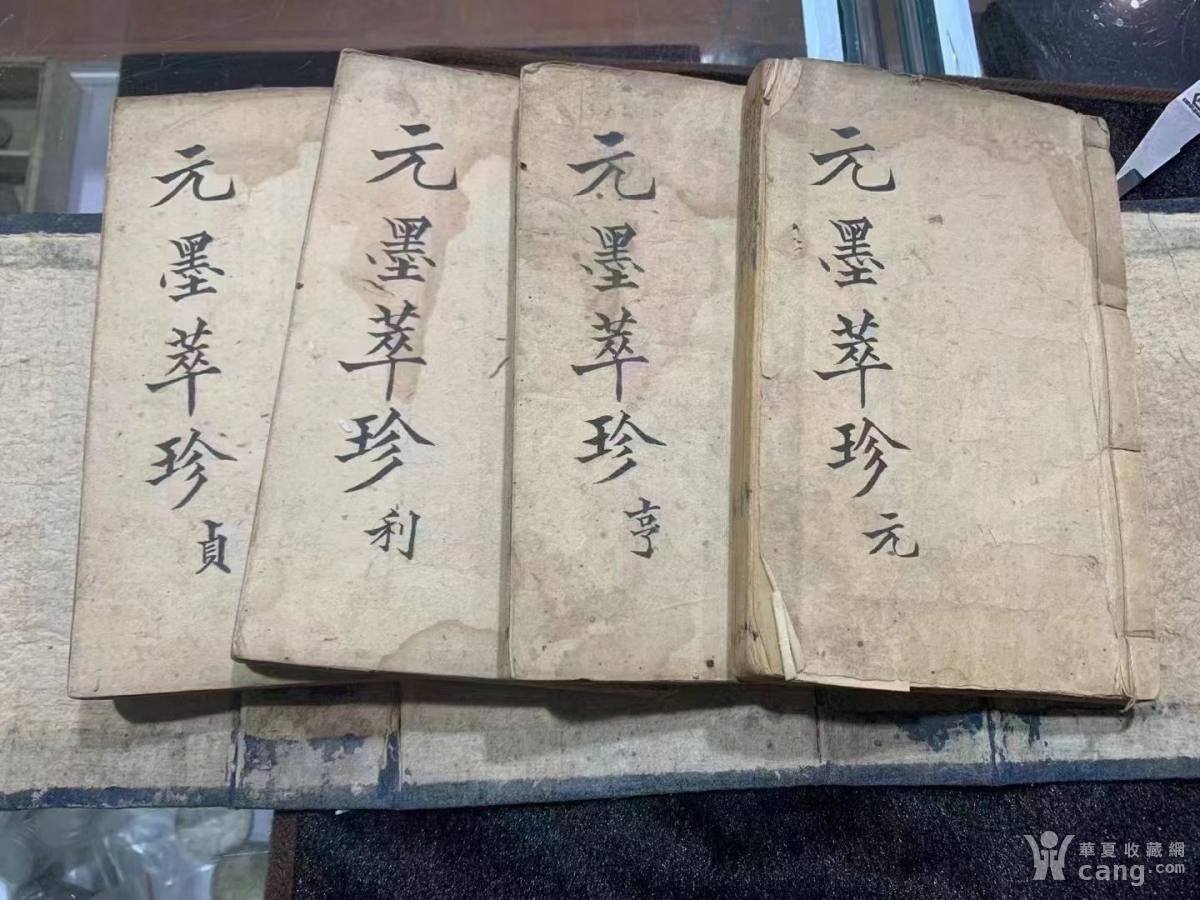 元墨萃珍 元
元墨萃珍 亨
元墨萃珍 利
元墨萃珍 貞
華夏收藏網
cang.com